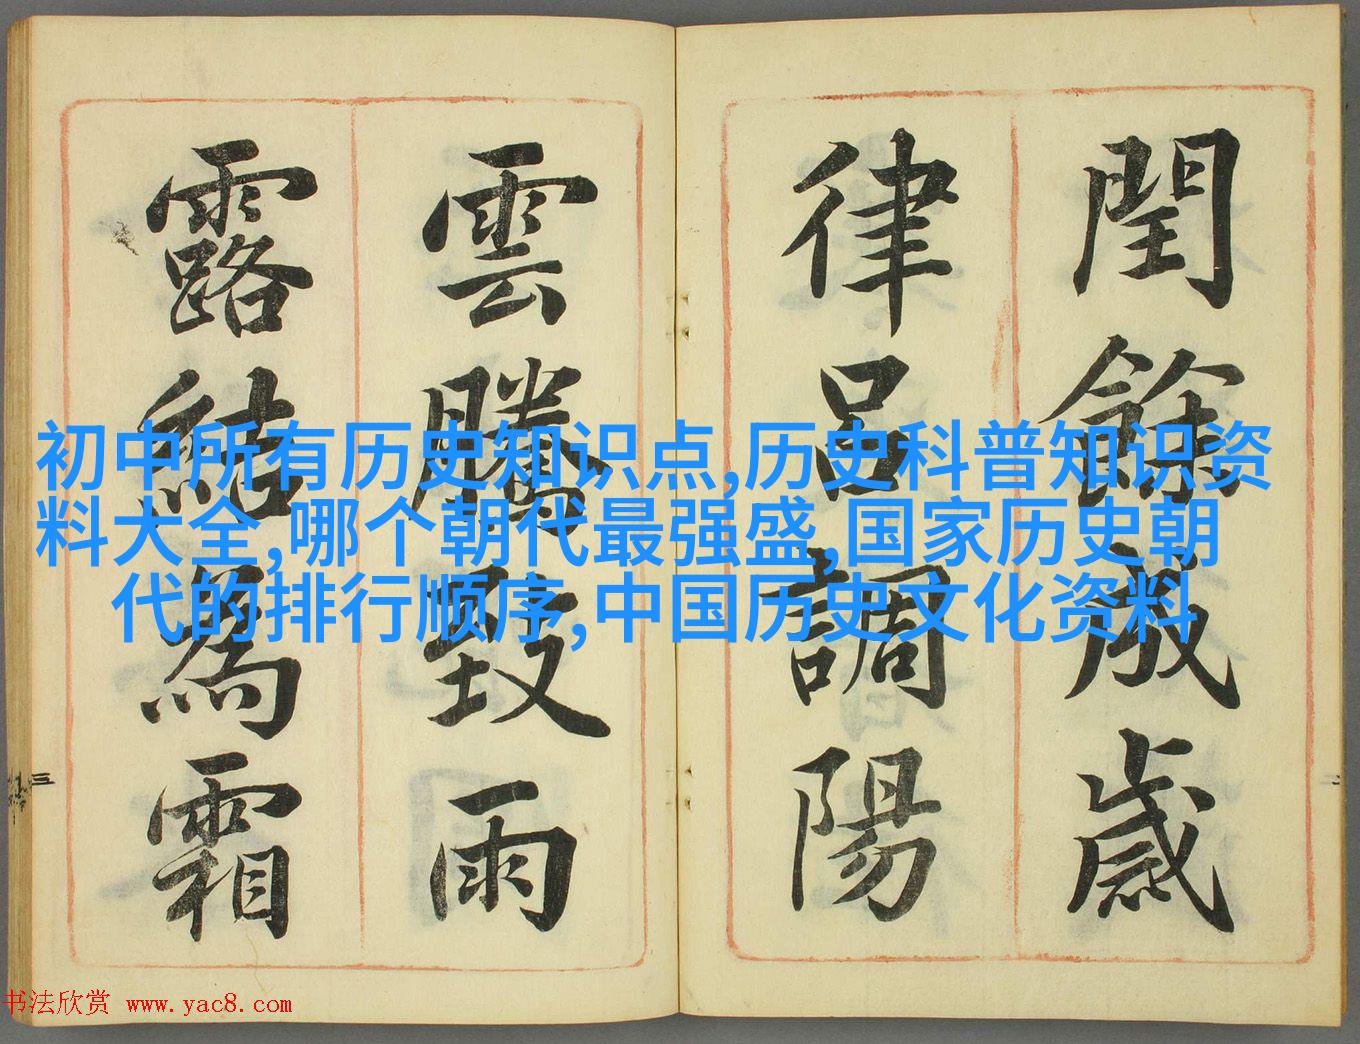 閏餘成歲
律呂調陽
雲騰致雨
露結為霜
初中所有历史知识点,历史科普知识资
料大全,哪个朝代最强盛,国家历史朝
代的排行顺序,中国历史文化资料
三
二
书法欣赏 www.yac8.com